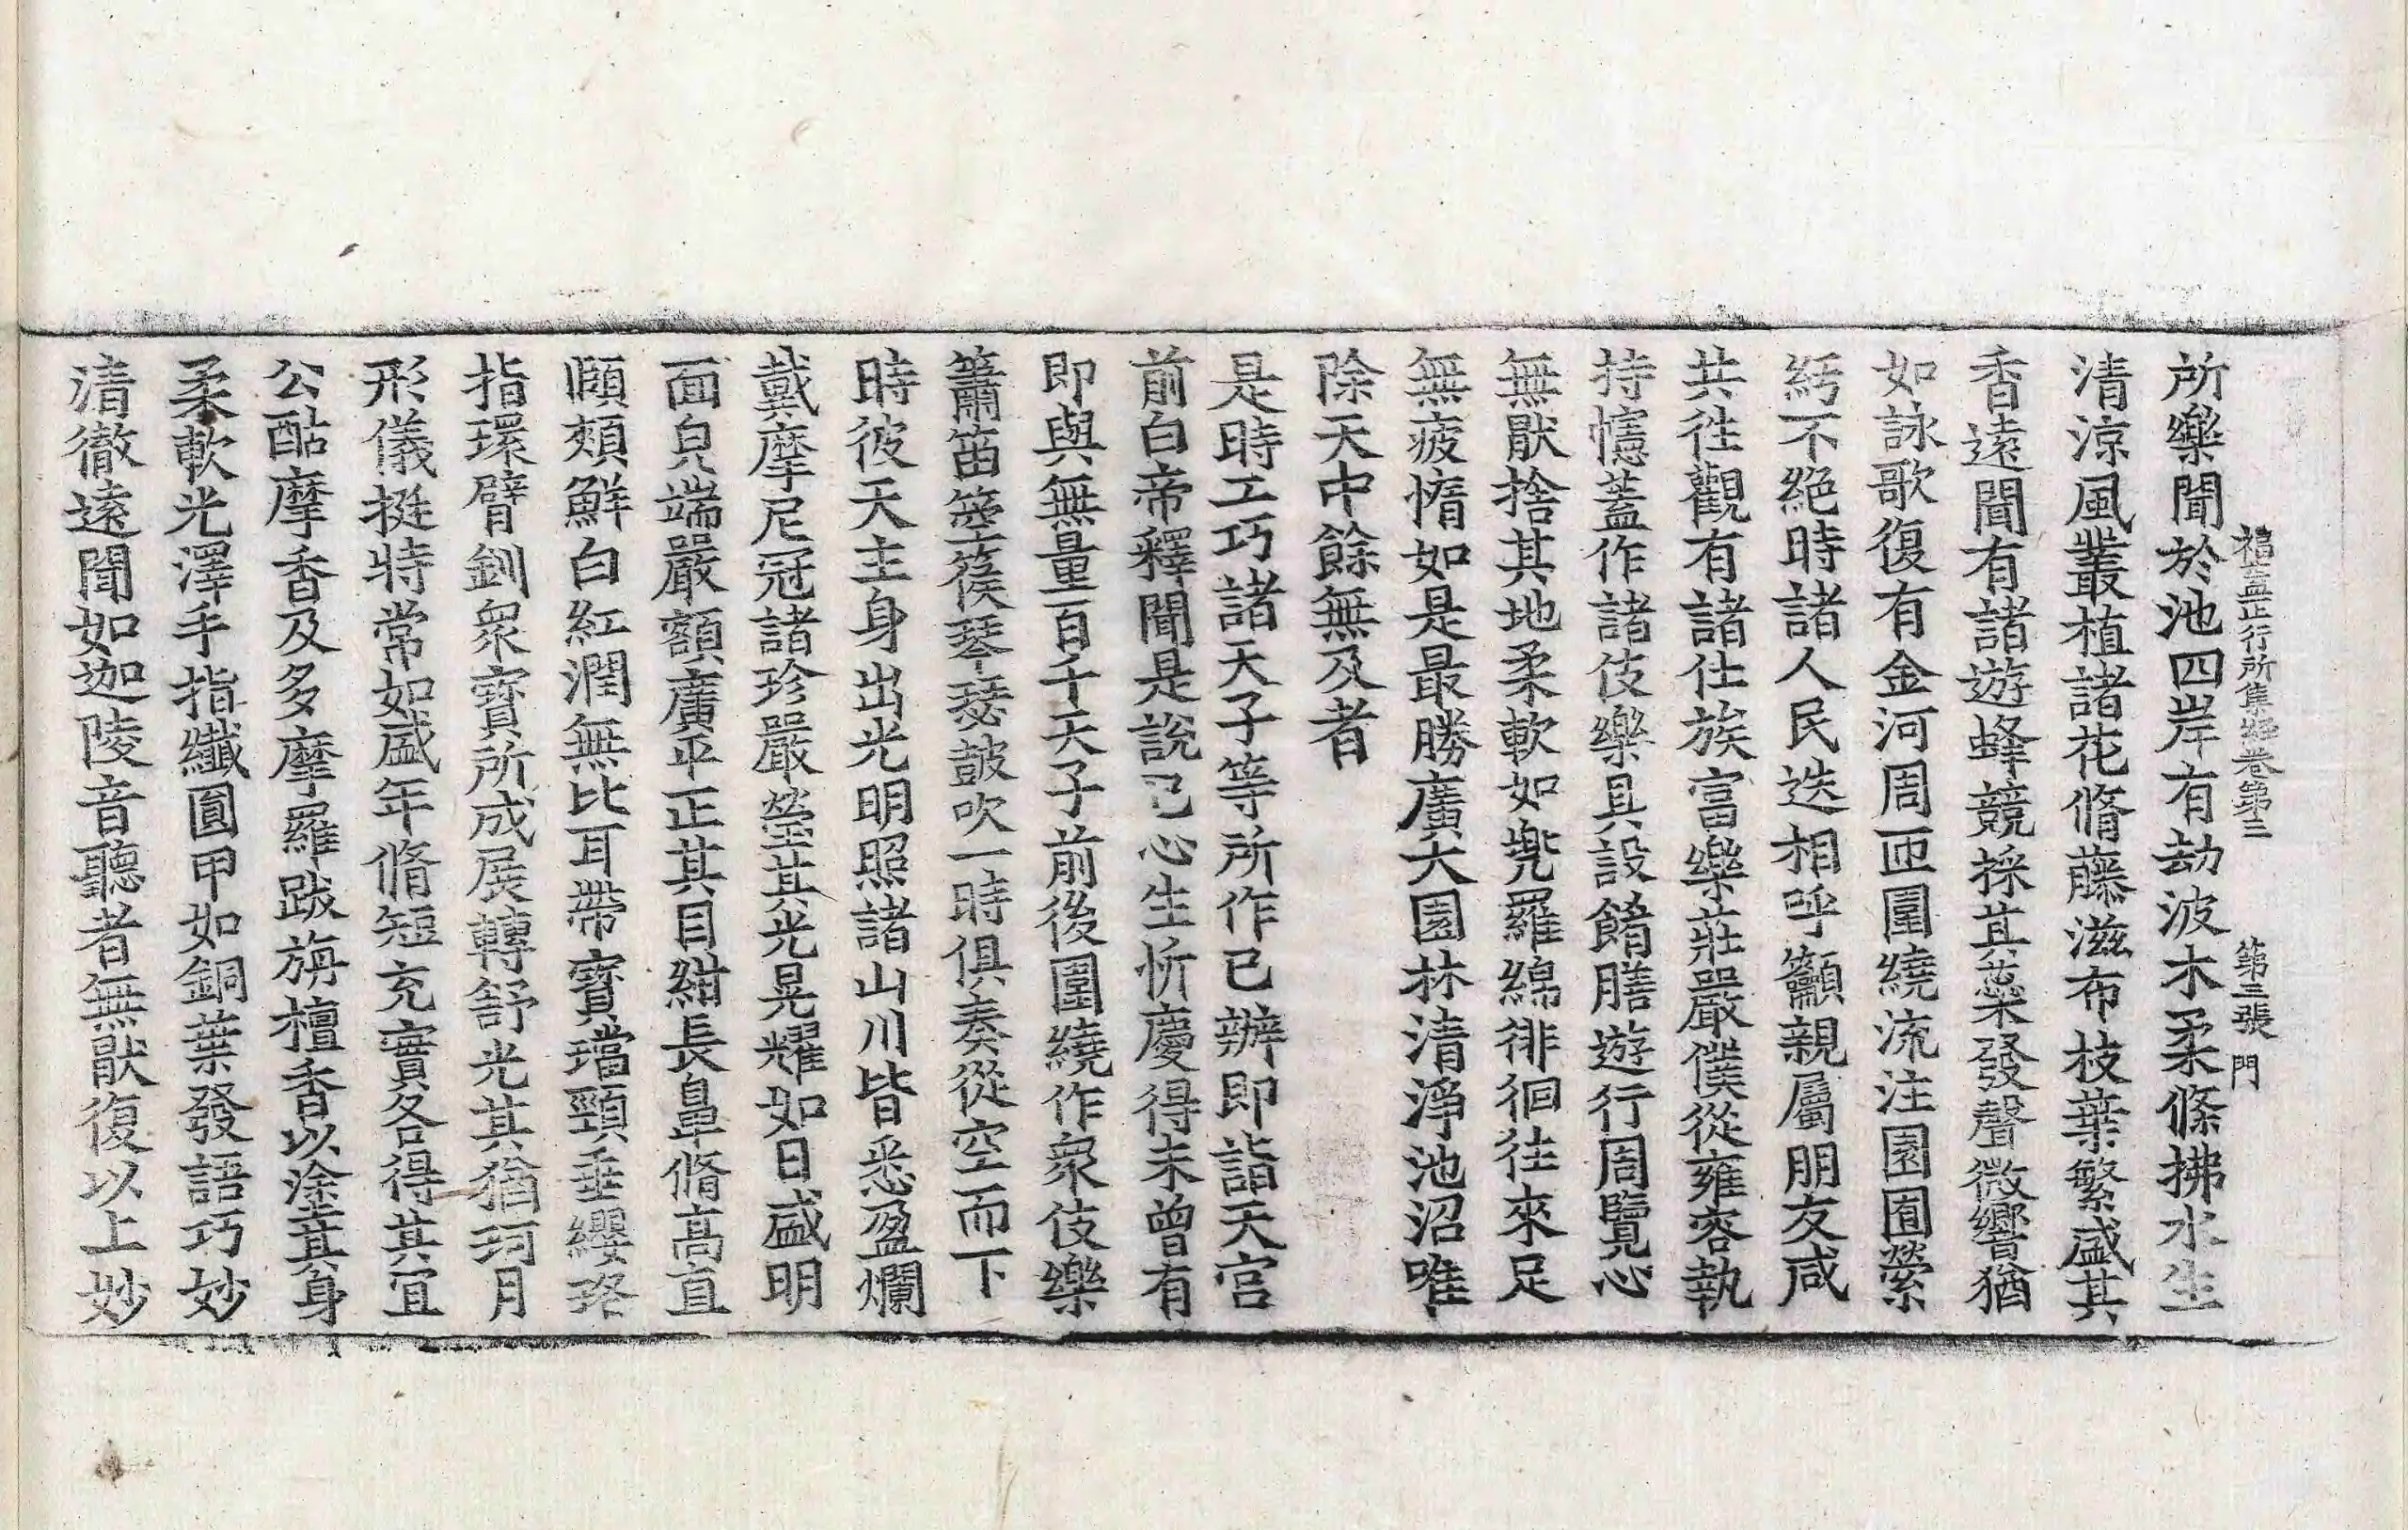 福蓋正行所集經卷第三 第三張 門
所樂聞於池四岸有劫波木柔條拂水生
清涼風叢植諸花脩藤滋布枝葉繁盛其
香遠聞有諸遊蜂競採其蘂發聲微響猶
如詠歌復有金河周匝圍繞流注園囿縈
紆不絕時諸人民迭相呼籲親屬朋友咸
共徃觀有諸仕族富樂莊嚴僕從雍容執
持幰蓋作諸伎樂具設餚膳遊行周覽心
無猒捨其地柔軟如兠羅綿徘徊往來足
無疲惰如是最勝廣大園林清淨池沼唯
除天中餘無及者
是時工巧諸天子等所作已辦即詣天宮
前白帝釋聞是說已心生忻慶得未曾有
即與無量百千天子前後圍繞作衆伎樂
簫笛箜篌琴瑟鼓吹一時俱奏從空而下
時彼天主身出光明照諸山川皆悉盈爛
戴摩尼冠諸珍嚴瑩其光晃耀如日盛明
面皃端嚴額廣平正其目紺長鼻脩高直
頤頰鮮白紅潤無比耳帶寶璫頸垂纓珞
指環臂釧衆寶所成展轉舒光其猶珂月
形儀挺特常如盛年脩短充實各得其宜
公酤摩香及多摩羅跋旃檀香以塗其身
柔軟光澤手指纖圓甲如銅葉發語巧妙
清徹遠聞如迦陵音聽者無猒復以上妙